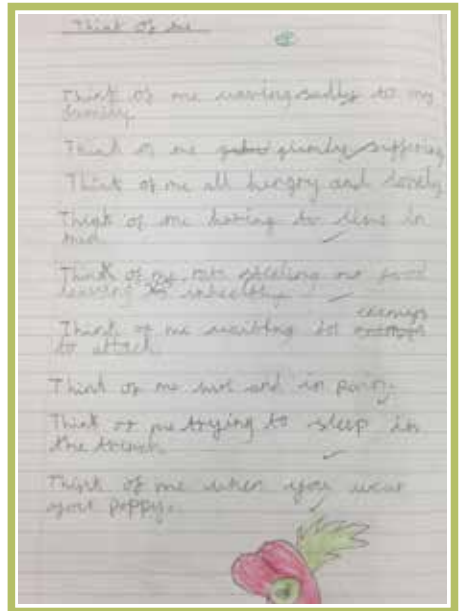 Think of me
Think of me waving sadly to my
family
Think of me suffering
Think of me all hungry and lonely
Think of me having to live in
mud
Think of me rats stealing my food
leaving it
Think of me waiting for enemys
to attack
Think of me and in pain.
Think of me trying to sleep in
the trench
Think of me when you wear
your poppy.